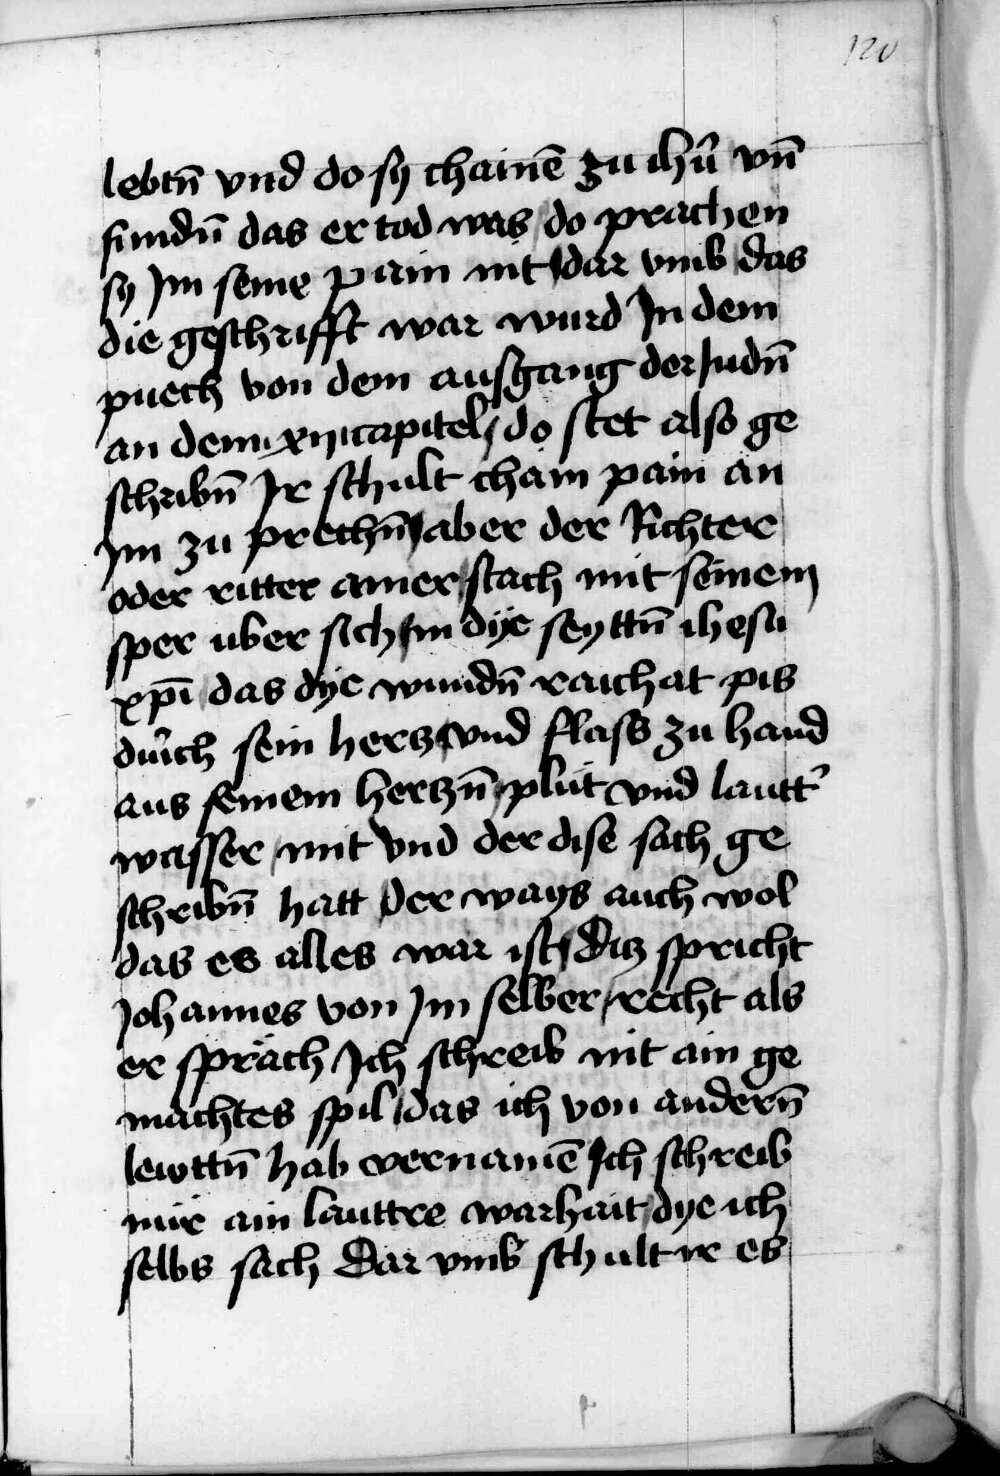 120
lebtn̄ vnd do sy chamē zu ihū vn̄
fundn̄ das er tod was / do prachen
sy Jm seine pain nit / dar vmb das
die geschrifft war wurd Jn dem
puech von dem ausgang der Judn̄
an dem xij capitel / do stet also ge
schribn̄ Jr schult chain pain an
Jm zu prechn̄ / aber der Richter
oder ritter ainer / stach mit seinem
sper uber sich / in dÿe seyttn̄ ihesu
xpī / das dÿe wundn̄ raichat pis
durch sein hertz / vnd flass zu hand
aus seinem hertzn̄ / plut vnd lautt'
wasser / mit vnd der dise sach ge
schribn̄ hatt / der ways auch wol
das es alles war ist / Ditz spricht
Johannes von Jm selber / recht als
er sprach / Jch schreib nit ain ge
machtes spil / das ich von andern̄
lewttn̄ hab vernamē Jch schreib
nür ain lauttre warhait / dye ich
selbs sach Dar vmb schult ir es